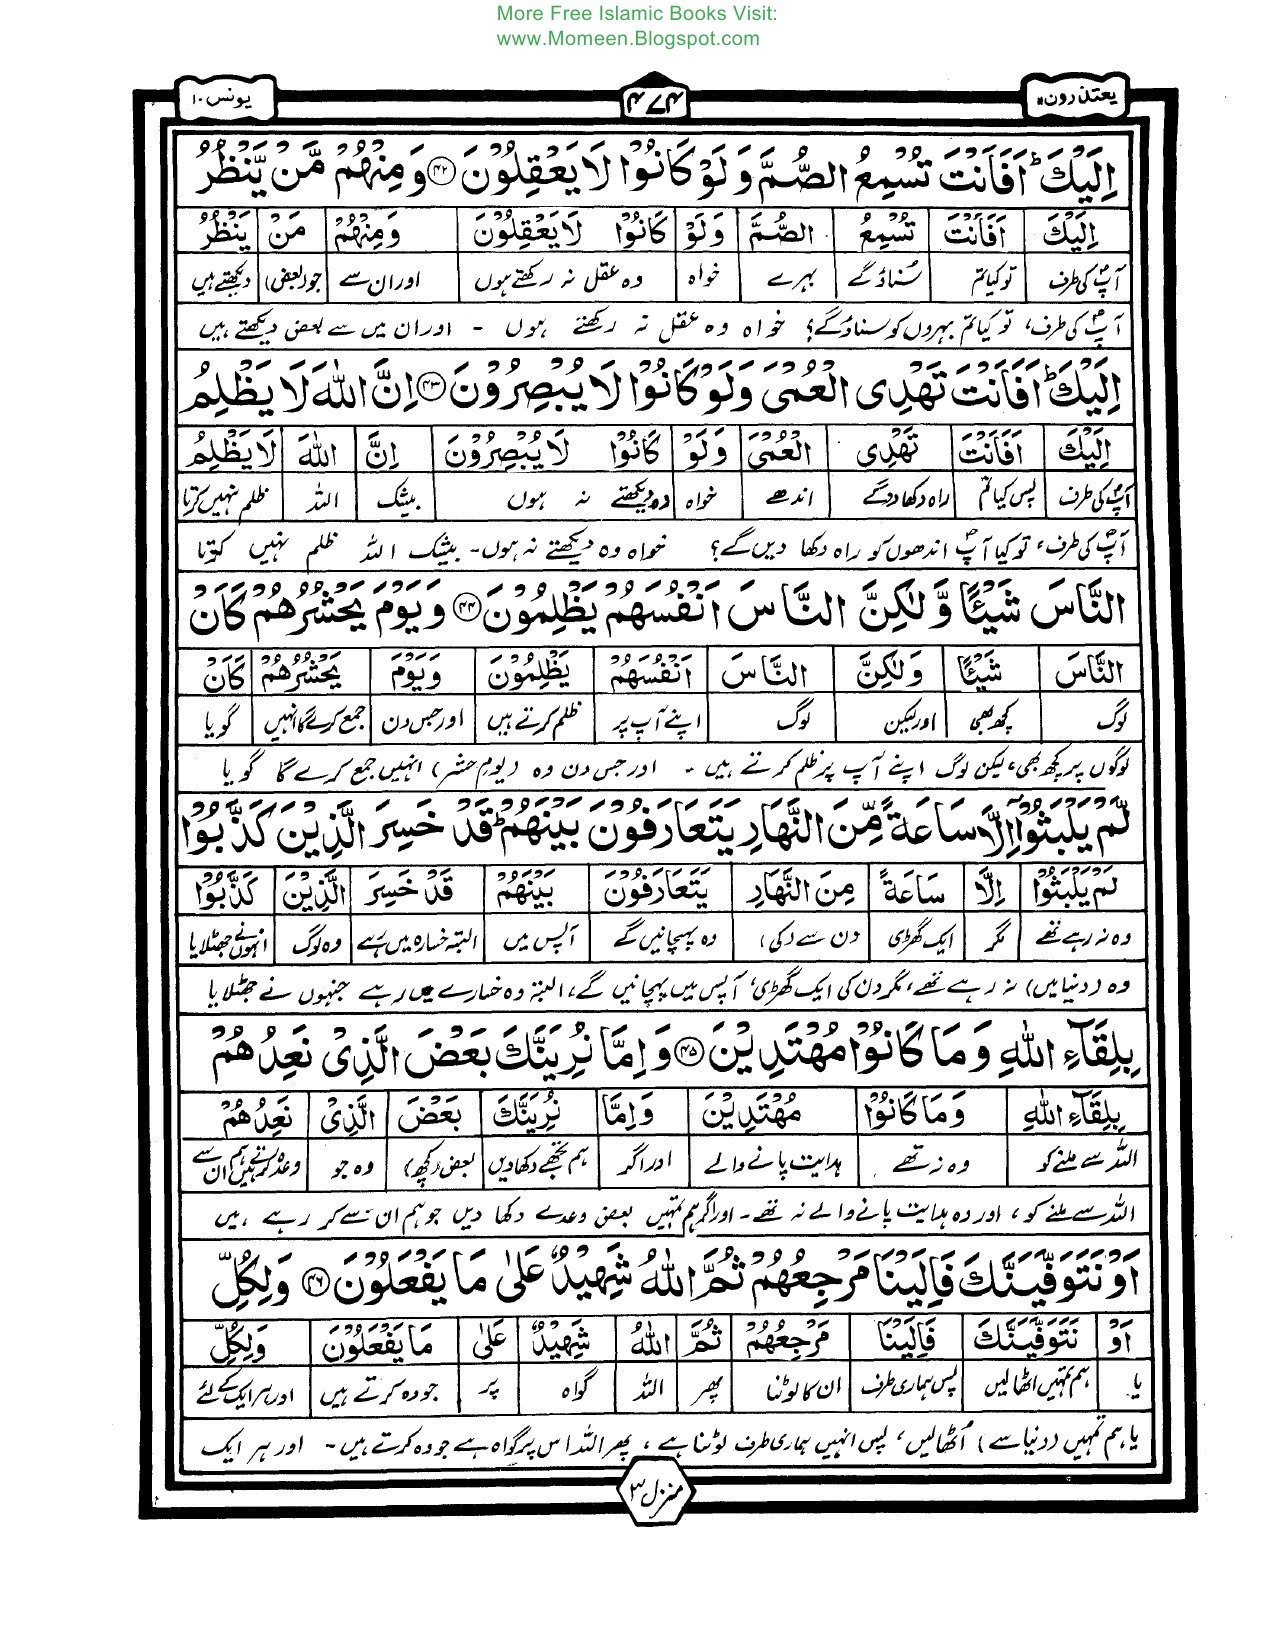 More Free Islamic Books Visit:
www.Momeen.Blogspot.com
یعتذرون ۱۱
۴۷۴
یونس ۱۰
اِلَيْكَ ؕ اَفَاَنْتَ تُسْمِعُ الصُّمَّ وَلَوْ كَانُوْا لَا يَعْقِلُوْنَ ﴿۴۲﴾ وَمِنْهُمْ مَّنْ يَّنْظُرُ
اِلَيْكَ اَفَاَنْتَ تُسْمِعُ الصُّمَّ وَلَوْ كَانُوْا لَا يَعْقِلُوْنَ وَمِنْهُمْ مَنْ يَنْظُرُ
آپؐ کی طرف تو کیا تم سُناؤ گے بہرے خواہ وہ عقل نہ رکھتے ہوں اور ان سے جو (بعض) دیکھتے ہیں
آپؐ کی طرف، تو کیا تم بہروں کو سناؤ گے؟ خواہ وہ عقل نہ رکھتے ہوں - اور ان میں سے بعض دیکھتے ہیں
اِلَيْكَ ؕ اَفَاَنْتَ تَهْدِى الْعُمْىَ وَلَوْ كَانُوْا لَا يُبْصِرُوْنَ ﴿۴۳﴾ اِنَّ اللّٰهَ لَا يَظْلِمُ
اِلَيْكَ اَفَاَنْتَ تَهْدِى الْعُمْىَ وَلَوْ كَانُوْا لَا يُبْصِرُوْنَ اِنَّ اللّٰهَ لَا يَظْلِمُ
آپؐ کی طرف پس کیا تم راہ دکھا دو گے اندھے خواہ وہ دیکھتے نہ ہوں بیشک اللہ ظلم نہیں کرتا
آپؐ کی طرف، تو کیا آپؐ اندھوں کو راہ دکھا دیں گے؟ خواہ وہ دیکھتے نہ ہوں - بیشک اللہ ظلم نہیں کرتا
النَّاسَ شَيْـًٔا وَّلٰكِنَّ النَّاسَ اَنْفُسَهُمْ يَظْلِمُوْنَ ﴿۴۴﴾ وَيَوْمَ يَحْشُرُهُمْ كَاَنْ
النَّاسَ شَيْـًٔا وَلٰكِنَّ النَّاسَ اَنْفُسَهُمْ يَظْلِمُوْنَ وَيَوْمَ يَحْشُرُهُمْ كَاَنْ
لوگ کچھ بھی اور لیکن لوگ اپنے آپ پر ظلم کرتے ہیں اور جس دن جمع کرے گا انہیں گویا
لوگوں پر کچھ بھی، لیکن لوگ اپنے آپ پر ظلم کرتے ہیں - اور جس دن وہ (یومِ حشر) انہیں جمع کرے گا گویا
لَّمْ يَلْبَثُوْۤا اِلَّا سَاعَةً مِّنَ النَّهَارِ يَتَعَارَفُوْنَ بَيْنَهُمْ ؕ قَدْ خَسِرَ الَّذِيْنَ كَذَّبُوْا
لَمْ يَلْبَثُوْا اِلَّا سَاعَةً مِنَ النَّهَارِ يَتَعَارَفُوْنَ بَيْنَهُمْ قَدْ خَسِرَ الَّذِيْنَ كَذَّبُوْا
وہ نہ رہے تھے مگر ایک گھڑی دن سے (کی) وہ پہچانیں گے آپس میں البتہ خسارہ میں رہے وہ لوگ انہوں نے جھٹلایا
وہ (دنیا میں) نہ رہے تھے، مگر دن کی ایک گھڑی، آپس میں پہچانیں گے، البتہ وہ خسارے میں رہے جنہوں نے جھٹلایا
بِلِقَآءِ اللّٰهِ وَمَا كَانُوْا مُهْتَدِيْنَ ﴿۴۵﴾ وَاِمَّا نُرِيَنَّكَ بَعْضَ الَّذِىْ نَعِدُهُمْ
بِلِقَآءِ اللّٰهِ وَمَا كَانُوْا مُهْتَدِيْنَ وَاِمَّا نُرِيَنَّكَ بَعْضَ الَّذِىْ نَعِدُهُمْ
اللہ سے ملنے کو وہ نہ تھے ہدایت پانے والے اور اگر ہم تجھے دکھا دیں بعض (کچھ) وہ جو وعدہ کرتے ہیں ہم ان سے
اللہ سے ملنے کو، اور وہ ہدایت پانے والے نہ تھے - اور اگر ہم تمہیں بعض وعدے دکھا دیں جو ہم ان سے کر رہے ہیں
اَوْ نَتَوَفَّيَنَّكَ فَاِلَيْنَا مَرْجِعُهُمْ ثُمَّ اللّٰهُ شَهِيْدٌ عَلٰى مَا يَفْعَلُوْنَ ﴿۴۶﴾ وَلِكُلِّ
اَوْ نَتَوَفَّيَنَّكَ فَاِلَيْنَا مَرْجِعُهُمْ ثُمَّ اللّٰهُ شَهِيْدٌ عَلٰى مَا يَفْعَلُوْنَ وَلِكُلِّ
یا ہم تمہیں اٹھا لیں پس ہماری طرف ان کا لوٹنا پھر اللہ گواہ پر جو وہ کرتے ہیں اور ہر ایک کے لئے
یا ہم تمہیں (دنیا سے) اُٹھا لیں، پس انہیں ہماری طرف لوٹنا ہے، پھر اللہ اس پر گواہ ہے جو وہ کرتے ہیں - اور ہر ایک
منزل ۳